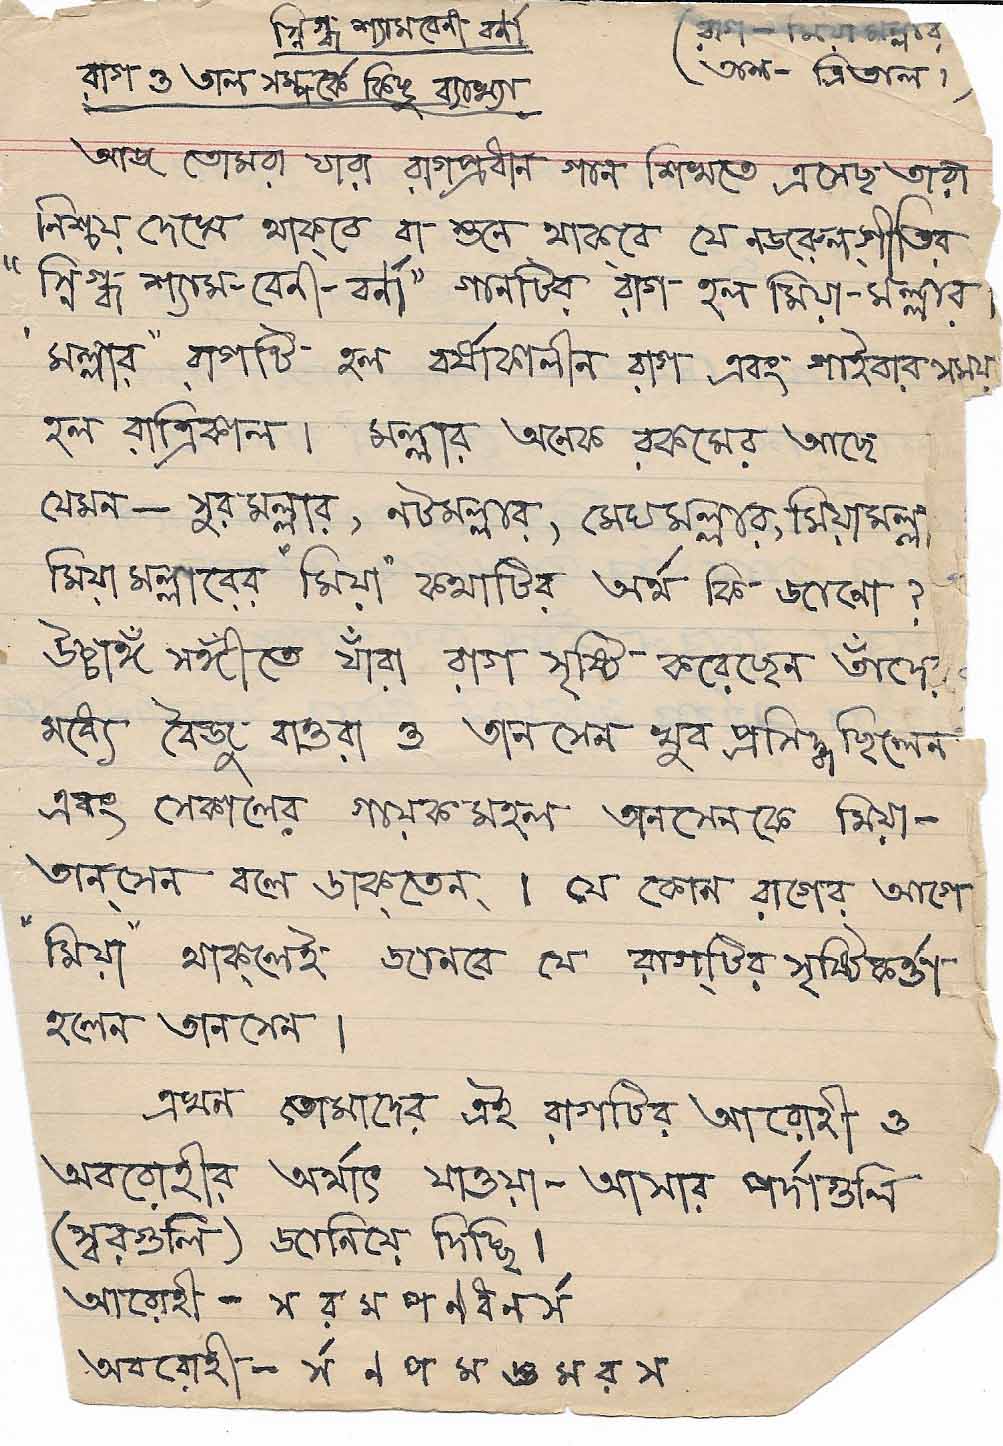 স্নিগ্ধ শ্যামবেনী বর্না
(রাগ - মিয়া মল্লার
রাগ ও তাল সম্পর্কে কিছু ব্যাখ্যা
তাল - ত্রিতাল।)
আজ তোমরা যারা রাগপ্রধান গান শিখতে এসেছ তারা
নিশ্চয় দেখে থাক্‌বে বা শুনে থাক্‌বে যে নজরুলগীতির
"স্নিগ্ধ শ্যাম-বেনী-বর্না" গানটির রাগ হল মিয়া-মল্লার।
"মল্লার" রাগটি হল বর্ষাকালীন রাগ এবং গাইবার সময়
হল রাত্রিকাল। মল্লার অনেক রকমের আছে
যেমন — সুরমল্লার, নটমল্লার, মেঘমল্লার, মিয়ামল্লা
মিয়া মল্লারের "মিয়া" কথাটির অর্থ কি জানো?
উচ্চাঙ্গঁ সঙ্গঁীতে যাঁরা রাগ সৃষ্টি করেছেন তাঁদের
মধ্যে বৈজু বাওরা ও তানসেন খুব প্রসিদ্ধ ছিলেন
এবং সেকালের গায়কমহল তানসেনকে মিয়া-
তান্‌সেন বলে ডাক্‌তেন্‌। যে কোন রাগের আগে
"মিয়া" থাক্‌লেই জানবে যে রাগ্‌টির সৃষ্টিকর্ত্তা
হলেন তানসেন।
এখন তোমাদের এই রাগটির আরোহী ও
অবরোহীর অর্থাৎ যাওয়া-আসার পর্দাগুলি
(স্বরগুলি) জানিয়ে দিচ্ছি।
আরোহী - স র ম প ণ ধ ন র্স
অবরোহী - র্স ণ প ম জ্ঞ ম র স